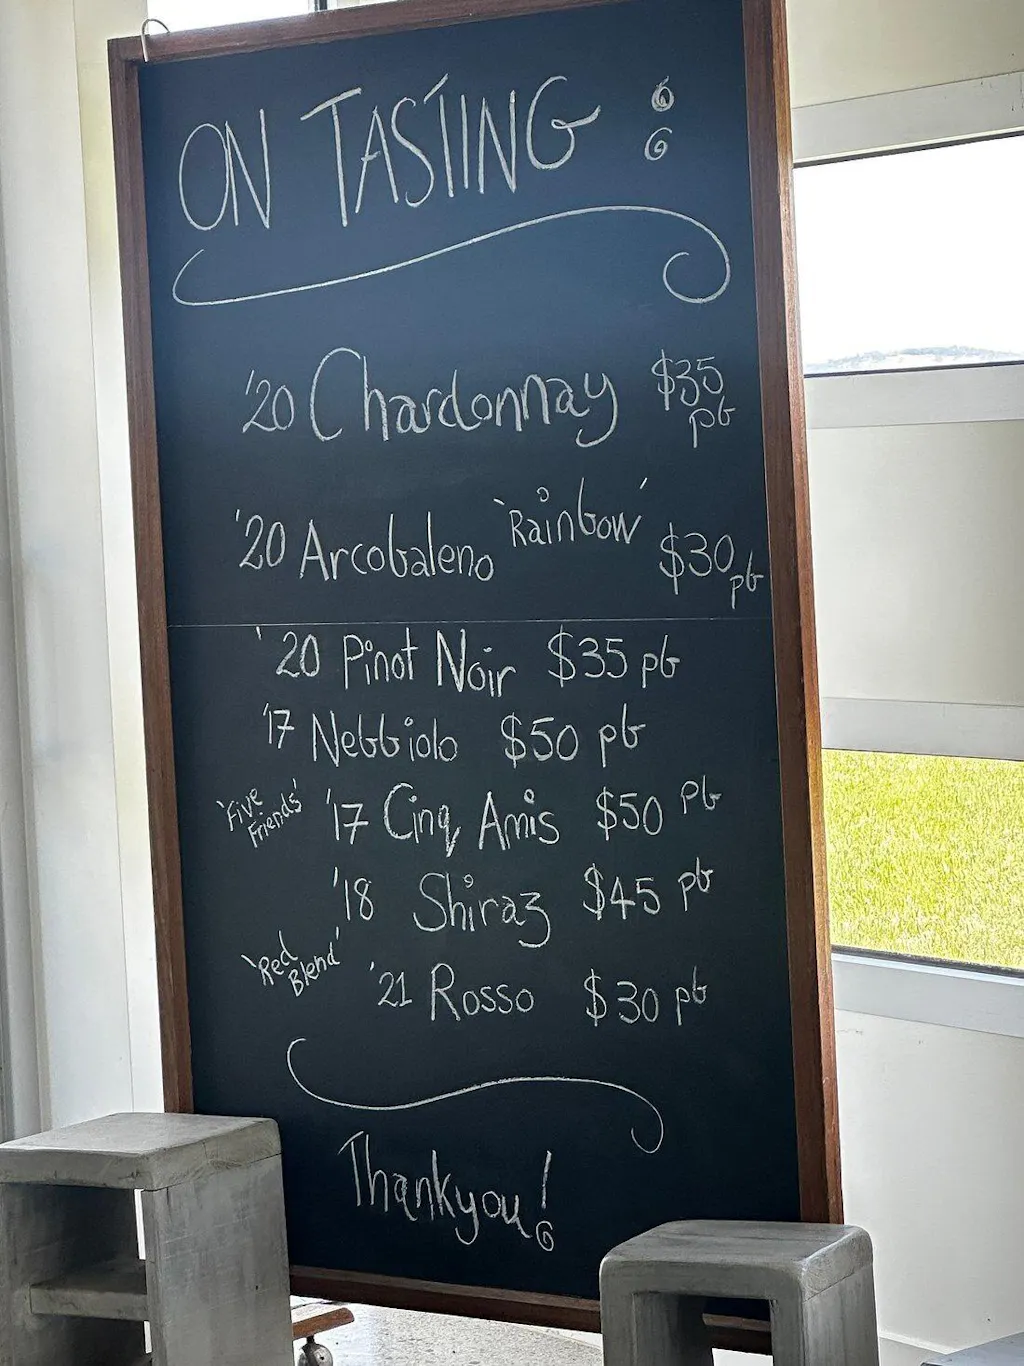 ON TASTING :
'20 Chardonnay $35 pb
'20 Arcobaleno 'Rainbow' $30 pb
'20 Pinot Noir $35 pb
'17 Nebbiolo $50 pb
'Five Friends' '17 Cinq Amis $50 pb
'18 Shiraz $45 pb
'Red Blend' '21 Rosso $30 pb
Thankyou!